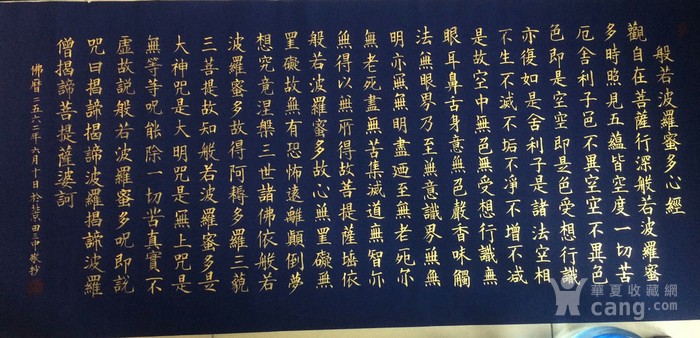 般若波羅蜜多心經
觀自在菩薩行深般若波羅蜜
多時照見五蘊皆空度一切苦
厄舍利子色不異空空不異色
色即是空空即是色受想行識
亦復如是舍利子是諸法空相
不生不滅不垢不淨不增不減
是故空中無色無受想行識無
眼耳鼻舌身意無色聲香味觸
法無眼界乃至無意識界無無
明亦無無明盡迺至無老死亦
無老死盡無苦集滅道無智亦
無得以無所得故菩提薩埵依
般若波羅蜜多故心無罣礙無
罣礙故無有恐怖遠離顛倒夢
想究竟涅槃三世諸佛依般若
波羅蜜多故得阿耨多羅三藐
三菩提故知般若波羅蜜多是
大神咒是大明咒是無上咒是
無等等呪能除一切苦真實不
虛故說般若波羅蜜多呪即說
咒曰揭諦揭諦波羅揭諦波羅
僧揭諦菩提薩婆訶
佛曆二五六二年六月十日於北京田三申敬抄
華夏收藏網
cang.com